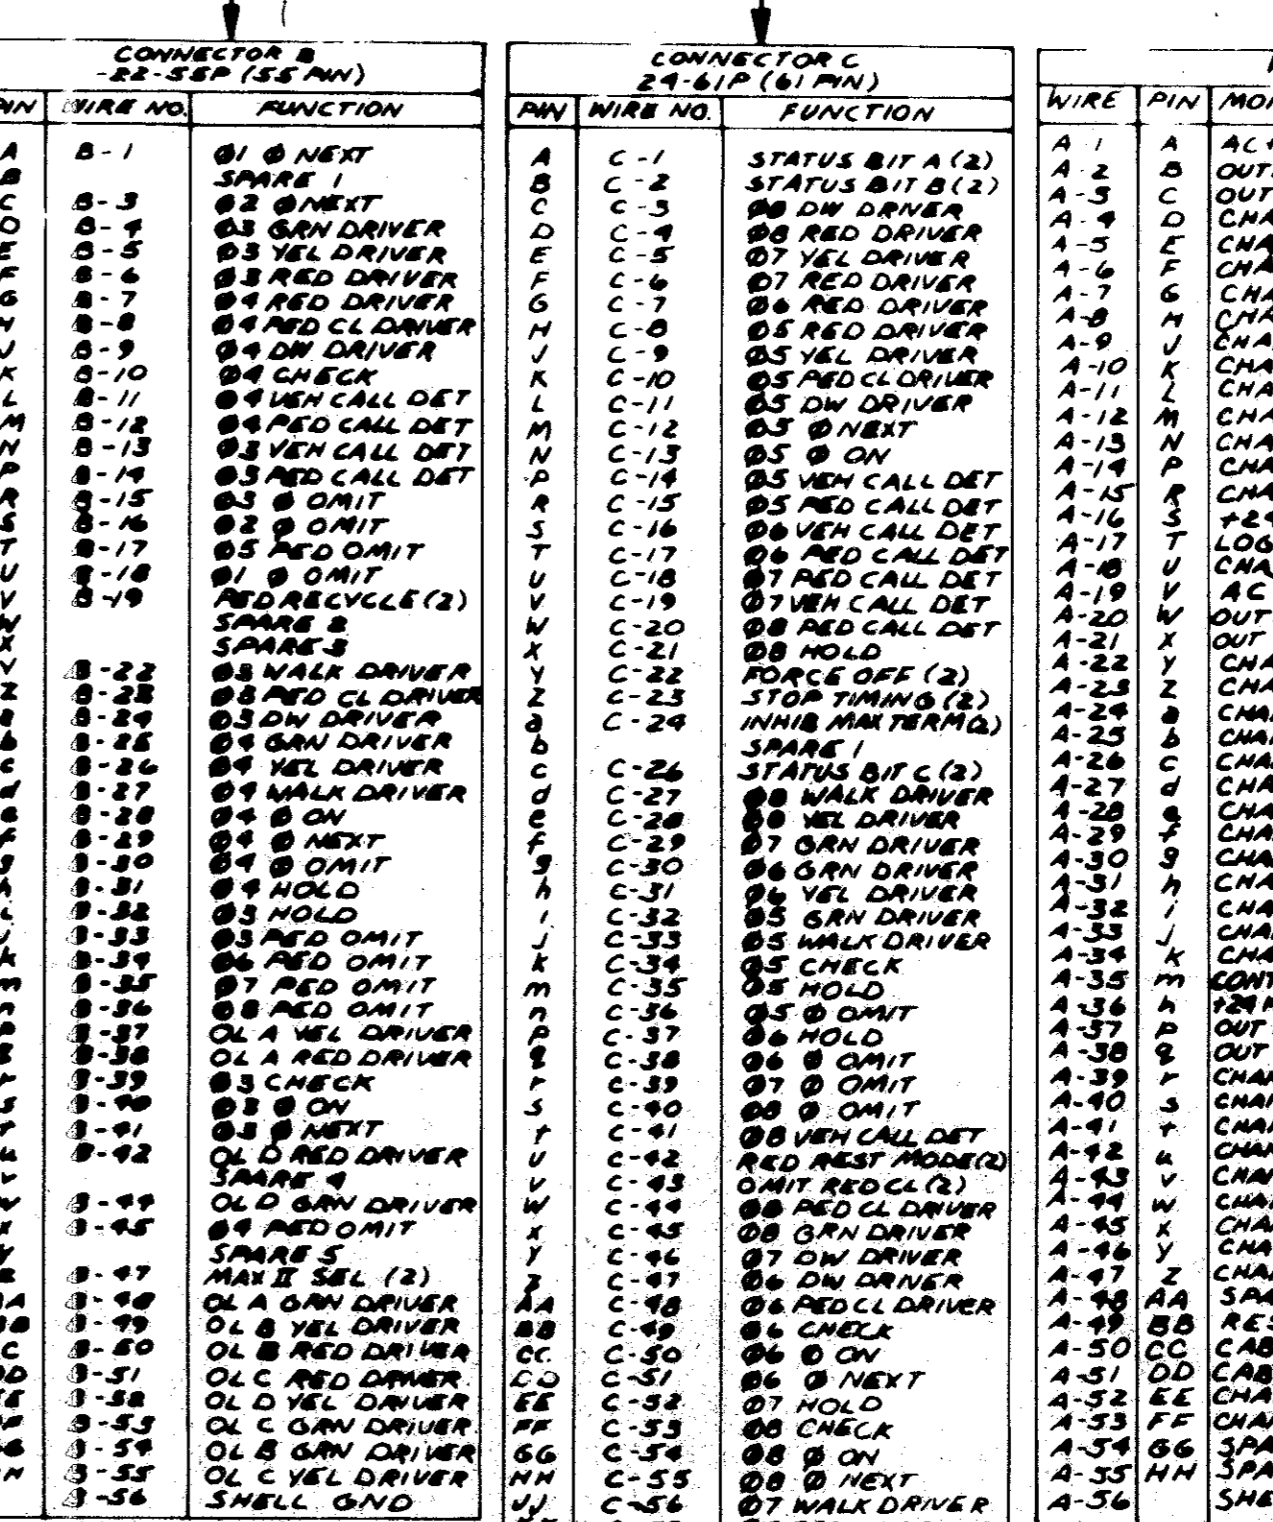 CONNECTOR B
-22-55P (55 PIN)
PIN WIRE NO. FUNCTION
A B-1 Ø1 Ø NEXT
B SPARE 1
C B-3 Ø2 Ø NEXT
D B-4 Ø3 GRN DRIVER
E B-5 Ø3 YEL DRIVER
F B-6 Ø3 RED DRIVER
G B-7 Ø4 RED DRIVER
H B-8 Ø4 PED CL DRIVER
J B-9 Ø4 DW DRIVER
K B-10 Ø4 CHECK
L B-11 Ø4 VEH CALL DET
M B-12 Ø4 PED CALL DET
N B-13 Ø3 VEH CALL DET
P B-14 Ø3 PED CALL DET
R B-15 Ø3 Ø OMIT
S B-16 Ø2 Ø OMIT
T B-17 Ø5 PED OMIT
U B-18 Ø1 Ø OMIT
V B-19 PED RECYCLE (2)
W SPARE 2
X SPARE 3
Y B-22 Ø3 WALK DRIVER
Z B-23 Ø3 PED CL DRIVER
a B-24 Ø3 DW DRIVER
b B-25 Ø4 GRN DRIVER
c B-26 Ø4 YEL DRIVER
d B-27 Ø4 WALK DRIVER
e B-28 Ø4 Ø ON
f B-29 Ø4 Ø NEXT
g B-30 Ø4 Ø OMIT
h B-31 Ø4 HOLD
i B-32 Ø3 HOLD
j B-33 Ø3 PED OMIT
k B-34 Ø6 PED OMIT
m B-35 Ø7 PED OMIT
n B-36 Ø8 PED OMIT
p B-37 OL A YEL DRIVER
q B-38 OL A RED DRIVER
r B-39 Ø3 CHECK
s B-40 Ø3 Ø ON
t B-41 Ø3 Ø NEXT
u B-42 OL D RED DRIVER
v SPARE 4
w B-44 OL D GRN DRIVER
x B-45 Ø4 PED OMIT
y SPARE 5
z B-47 MAX II SEL (2)
AA B-48 OL A GRN DRIVER
BB B-49 OL B YEL DRIVER
CC B-50 OL B RED DRIVER
DD B-51 OL C RED DRIVER
EE B-52 OL D YEL DRIVER
FF B-53 OL C GRN DRIVER
GG B-54 OL B GRN DRIVER
HH B-55 OL C YEL DRIVER
B-56 SHELL GND
CONNECTOR C
24-61P (61 PIN)
PIN WIRE NO. FUNCTION
A C-1 STATUS BIT A (2)
B C-2 STATUS BIT B (2)
C C-3 Ø8 DW DRIVER
D C-4 Ø8 RED DRIVER
E C-5 Ø7 YEL DRIVER
F C-6 Ø7 RED DRIVER
G C-7 Ø6 RED DRIVER
H C-8 Ø5 RED DRIVER
J C-9 Ø5 YEL DRIVER
K C-10 Ø5 PED CL DRIVER
L C-11 Ø5 DW DRIVER
M C-12 Ø5 Ø NEXT
N C-13 Ø5 Ø ON
P C-14 Ø5 VEH CALL DET
R C-15 Ø5 PED CALL DET
S C-16 Ø6 VEH CALL DET
T C-17 Ø6 PED CALL DET
U C-18 Ø7 PED CALL DET
V C-19 Ø7 VEH CALL DET
W C-20 Ø8 PED CALL DET
X C-21 Ø8 HOLD
Y C-22 FORCE OFF (2)
Z C-23 STOP TIMING (2)
a C-24 INHIB MAX TERM (2)
b SPARE 1
c C-26 STATUS BIT C (2)
d C-27 Ø8 WALK DRIVER
e C-28 Ø8 YEL DRIVER
f C-29 Ø7 GRN DRIVER
g C-30 Ø6 GRN DRIVER
h C-31 Ø6 YEL DRIVER
i C-32 Ø5 GRN DRIVER
j C-33 Ø5 WALK DRIVER
k C-34 Ø5 CHECK
m C-35 Ø5 HOLD
n C-36 Ø5 Ø OMIT
p C-37 Ø6 HOLD
q C-38 Ø6 Ø OMIT
r C-39 Ø7 Ø OMIT
s C-40 Ø8 Ø OMIT
t C-41 Ø8 VEH CALL DET
u C-42 RED REST MODE (2)
v C-43 OMIT RED CL (2)
w C-44 Ø8 PED CL DRIVER
x C-45 Ø8 GRN DRIVER
y C-46 Ø7 DW DRIVER
z C-47 Ø6 DW DRIVER
AA C-48 Ø6 PED CL DRIVER
BB C-49 Ø6 CHECK
CC C-50 Ø6 Ø ON
DD C-51 Ø6 Ø NEXT
EE C-52 Ø7 HOLD
FF C-53 Ø8 CHECK
GG C-54 Ø8 Ø ON
HH C-55 Ø8 Ø NEXT
JJ C-56 Ø7 WALK DRIVER
WIRE PIN MON
A-1 A AC+
A-2 B OUT
A-3 C OUT
A-4 D CHA
A-5 E CHA
A-6 F CHA
A-7 G CHA
A-8 H CHA
A-9 J CHA
A-10 K CHA
A-11 L CHA
A-12 M CHA
A-13 N CHA
A-14 P CHA
A-15 R CHA
A-16 S +24
A-17 T LOG
A-18 U CHA
A-19 V AC
A-20 W OUT
A-21 X OUT
A-22 Y CHA
A-23 Z CHA
A-24 a CHA
A-25 b CHA
A-26 c CHA
A-27 d CHA
A-28 e CHA
A-29 f CHA
A-30 g CHA
A-31 h CHA
A-32 i CHA
A-33 j CHA
A-34 k CHA
A-35 m CONT
A-36 n +24
A-37 p OUT
A-38 q OUT
A-39 r CHAN
A-40 s CHAN
A-41 t CHAN
A-42 u CHAN
A-43 v CHAN
A-44 w CHA
A-45 x CHA
A-46 y CHA
A-47 z CHA
A-48 AA SPA
A-49 BB RES
A-50 CC CAB
A-51 DD CAB
A-52 EE CHA
A-53 FF CHA
A-54 GG SPA
A-55 HH SPA
A-56 SHE